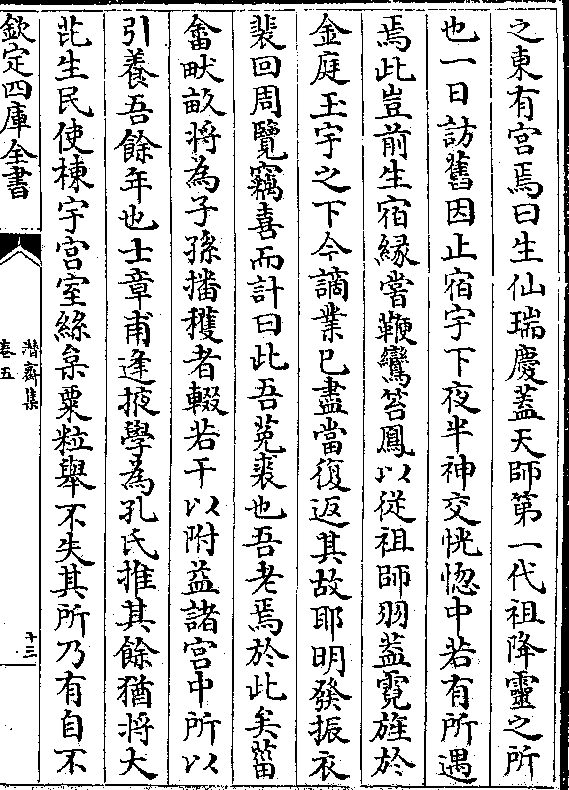 之東有宫焉曰生仙瑞慶蓋天師第一代祖降靈之所
也一日訪舊因止宿宇下夜半神交恍惚中若有所遇
焉此豈前生宿緣嘗鞭鸞笞鳳以從祖師羽葢霓旌於
金庭玉宇之下今謫業已盡當復返其故耶明發振衣
裴回周覽竊喜而計曰此吾菟裘也吾老焉於此矣菑
畬畎畝将為子孫播穫者輟若干以附益諸宫中所以
引養吾餘年也士章甫逢掖學為孔氏推其餘猶將大
芘生民使棟宇宫室絲枲粟粒舉不失其所乃有自不
欽定四庫全書
潛齋集
卷五
十三